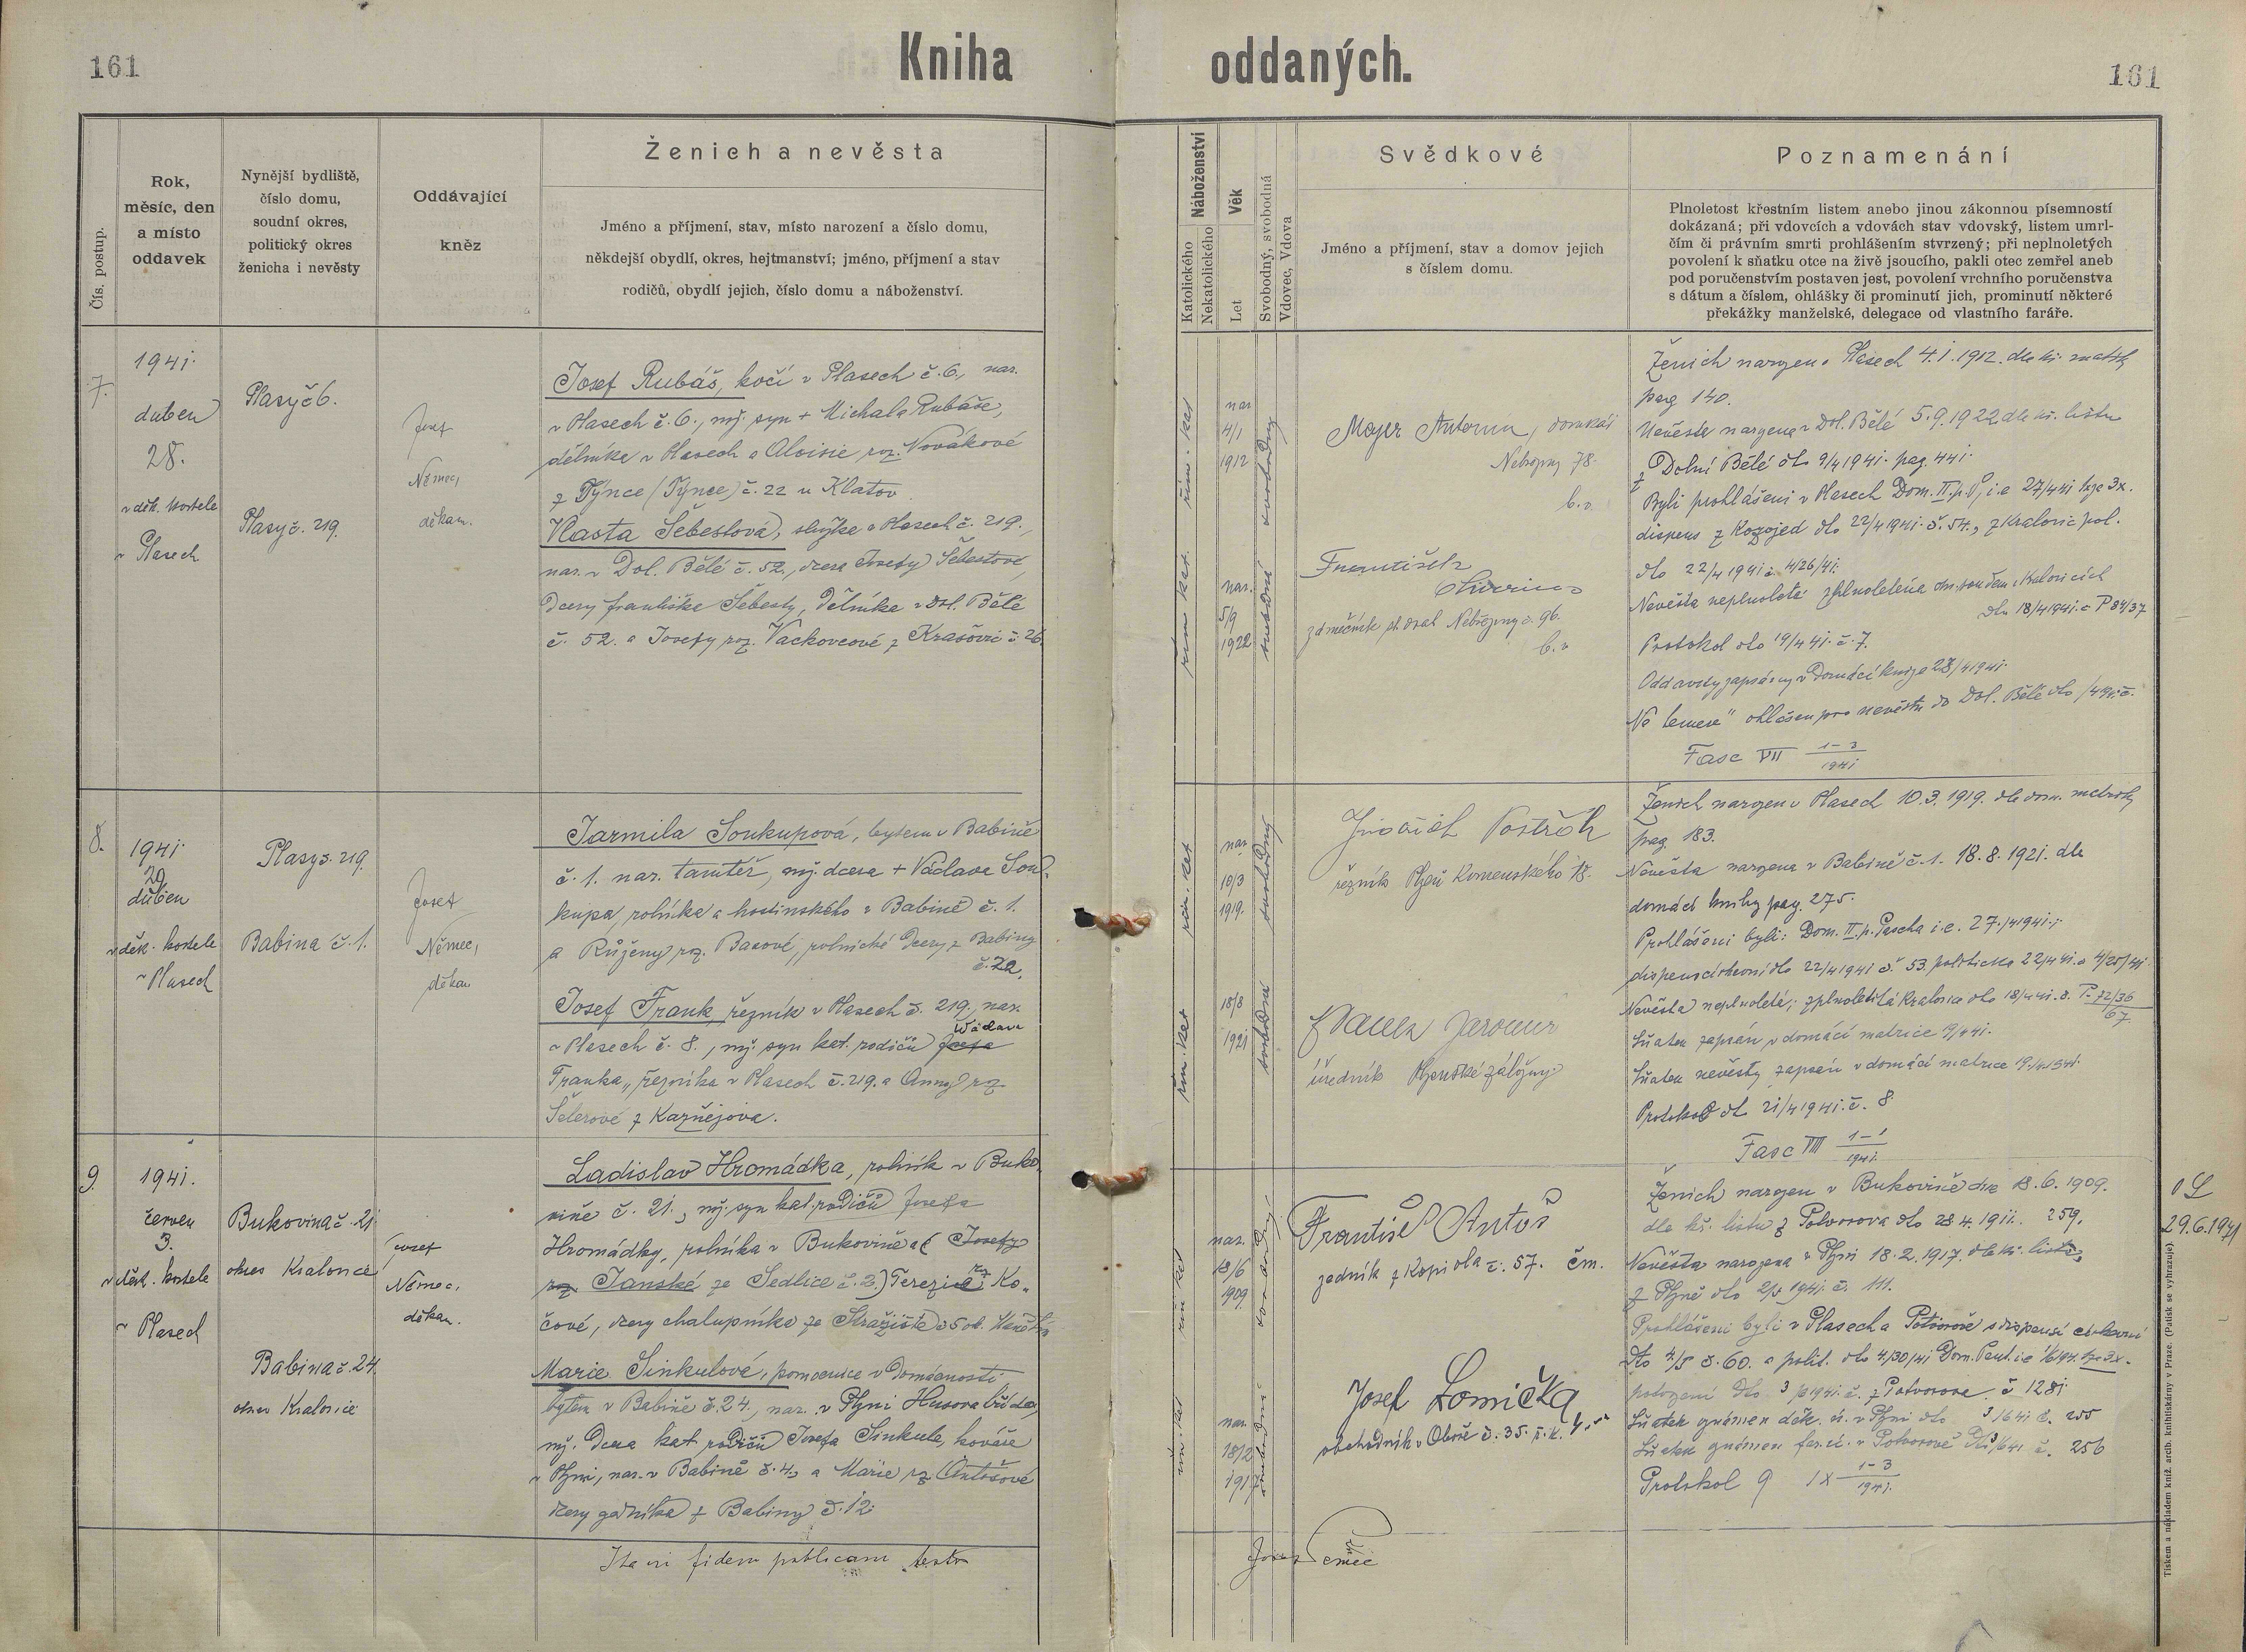 161
Kniha oddaných.
161
Čís. postup.
Rok,
měsíc, den
a místo
oddavek
Nynější bydliště,
číslo domu,
soudní okres,
politický okres
ženicha i nevěsty
Oddávající
kněz
Ženich a nevěsta
Jméno a příjmení, stav, místo narození a číslo domu,
někdejší obydlí, okres, hejtmanství; jméno, příjmení a stav
rodičů, obydlí jejich, číslo domu a náboženství.
Náboženství
Katolického
Nekatolického
Věk
Let
Svobodný, svobodná
Vdovec, Vdova
Svědkové
Jméno a příjmení, stav a domov jejich
s číslem domu.
Poznamenání
Plnoletost křestním listem anebo jinou zákonnou písemností
dokázaná; při vdovcích a vdovách stav vdovský, listem umrl-
čím či právním smrti prohlášením stvrzený; při neplnoletých
povolení k sňatku otce na živě jsoucího, pakli otec zemřel aneb
pod poručenstvím postaven jest, povolení vrchního poručenstva
s dátum a číslem, ohlášky či prominutí jich, prominutí některé
překážky manželské, delegace od vlastního faráře.
7.
1941.
duben
28.
v děk. kostele
v Plasech
Plasy č 6.
Plasy č. 219.
Josef
Němec,
děkan.
Josef Rubáš, kočí v Plasech č. 6., nar.
v Plasech č. 6., mž. syn + Michala Rubáše,
dělníka v Plasech a Aloisie roz. Novákové
z Týnce (Týnce) č. 22 u Klatov
Vlasta Šebestová, služka v Plasech č. 219.,
nar. v Dol. Bělé č. 52., dcera Josefy Šebestové,
dcery Františka Šebesty, dělníka v Dol. Bělé
č. 52. a Josefy roz. Vackovcové z Krašovic č 26.
řím. kat
řím. kat.
nar
4/1
1912
nar.
5/9
1922
svobodný
svobodná
Mayer Antonín, domkář
Nebřeziny 78.
b.v.
František
Nebřeziny č. 96.
b. v
Ženich narozen v Plasech 4. 1. 1912. dle kř. matriky
pag 140.
Nevěsta narozena v Dol. Bělé 5. 9. 1922 dle kř. listu
z Dolní Bělé dto 9/4 1941. pag. 441.
Byli prohlášeni v Plasech Dom. II. p. P., i. e 27/4 41 1 za 3x.
dispens z Kozojed dto 22/4 1941. č. 54., z Kralovic pol.
dto 22/4 1941 č. 4/26/41.
Nevěsta neplnoletá zplnoletěna okr. soudem v Kralovicích
dto 18/4 1941. č P 84/37
Protokol dto 19/4 41. č. 7.
Oddavky zapsány v Domácí knize 28/4 1941.
Fasc VII 1-3
1941
8.
1941
29
duben
v děk. kostele
v Plasech
Plasy č. 219.
Babina č. 1.
Josef
Němec,
děkan
Jarmila Soukupová, bytem v Babině
č. 1. nar. tamtéž, mž. dcera + Václava Sou-
kupa, rolníka a hostinského v Babině č. 1.
a Růženy roz. Basové, rolnické dcery z Babiny
č. 22.
Josef Frank, řezník v Plasech č. 219., nar.
v Plasech č. 8., mž. syn kat. rodičů Josefa Václava
Franka, řezníka v Plasech č. 219. a Anny roz.
Šelerové z Kazňejova.
řím. kat
řím. kat
nar
10/3
1919.
18/8
1921
svobodný
svobodná
řezník Plzeň Komenského
Jaromír
úředník Plzeňské záložny
Ženich narozen v Plasech 10. 3. 1919. dle dom. matriky
pag 183.
Nevěsta narozena v Babině č. 1. 18. 8. 1921. dle
domácí knihy pag. 275.
Prohlášeni byli: Dom. II. p. Pascha i. e. 27./4 1941.;
dispens církevní dto 22/4 1941 č. 53. politická 22/4 41. č 4/25/41
Nevěsta neplnoletá; zplnoletilá Kralovice dto 18/4 41. č. P. 72/36
67
Sňatek zapsán v domácí matrice 9/4 41.
Sňatek nevěsty zapsán v domácí matrice 19./4. 1941.
Protokol dto 21/4 1941. č. 8
Fasc VIII 1-1
1941.
9.
1941.
červen
3.
v děk. kostele
v Plasech
Bukovina č. 21
okres Kralovice
Babina č. 24.
okres Kralovice
Josef
Němec,
děkan.
Ladislav Hromádka, rolník v Buko-
vině č. 21., mž. syn kat. rodičů Josefa
Hromádky, rolníka v Bukovině a ( Josefy
roz. Janské ze Sedlice č. 2.) Terezie roz Ko-
čové, dcery chalupníka ze Stražiště č 5 ok.
Marie Sinkulové, pomocnice v domácnosti
bytem v Babině č. 24., nar. v Plzni Husova třída,
mž. dcera kat. rodičů Josefa Sinkule, kováře
v Plzni, nar. v Babině č. 4., a Marie roz Antošové
dcery z Babiny č. 12.
řím kat
řím. kat
nar.
18/6
1909
nar.
18/2
1917
svobodný
svobodná
František Antoš
zedník z Kopidla č. 57. čm.
Josef Lomička
obchodník v Oboře č. 35.
Ženich narozen v Bukovině dne 18. 6. 1909.
dle kř. listu z Potvorova dto 28. 4. 1911. 259.
Nevěsta narozena v Plzni 18. 2. 1917. dle kř. listu
z Plzně dto 2/5 1941. č. 111.
Prohlášeni byli v Plasech a Potvorově s dispensí církevní
Sňatek oznámen děk. ú. v Plzni dto 3/6 41 č. 255
Sňatek oznámen far. ú. v Potvorově dto 3/6 41 č. 256
Protokol 9 IX 1-3
1941.
29. 6. 1941
Ita in fidem publicam testor
Josef Němec
Tiskem a nákladem kníž. arcib. knihtiskárny v Praze. (Patisk se vyhrazuje)